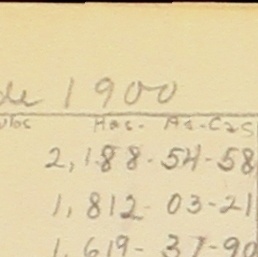 de 1900
Has- As-Cas
2,188-54-58
1,812- 03-21
1,619- 37-90